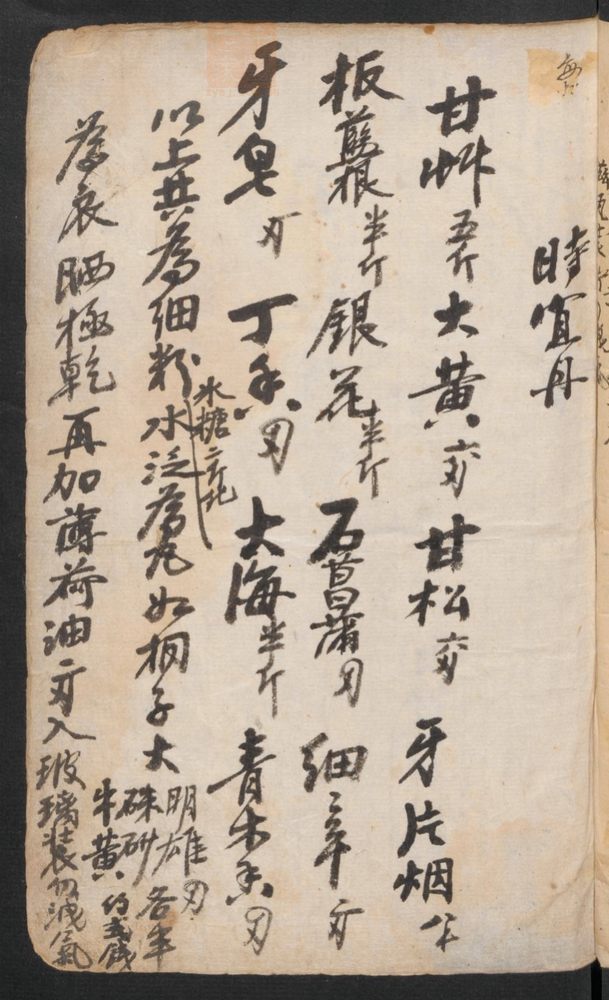 時宜丹
甘艸 五斤 大黃 甘松 牙片烟
板藍根 半斤 銀花 半斤 石菖蒲 刃 細辛
牙皂 丁香 刃 大海 半斤 青木香 刃
以上共為細粉 水泛為丸如桐子大
氷糖二斤化
明雄 刃
硃砂 各半
牛黃
為衣 晒極乾 再加薄荷油 入玻璃裝勿洩氣